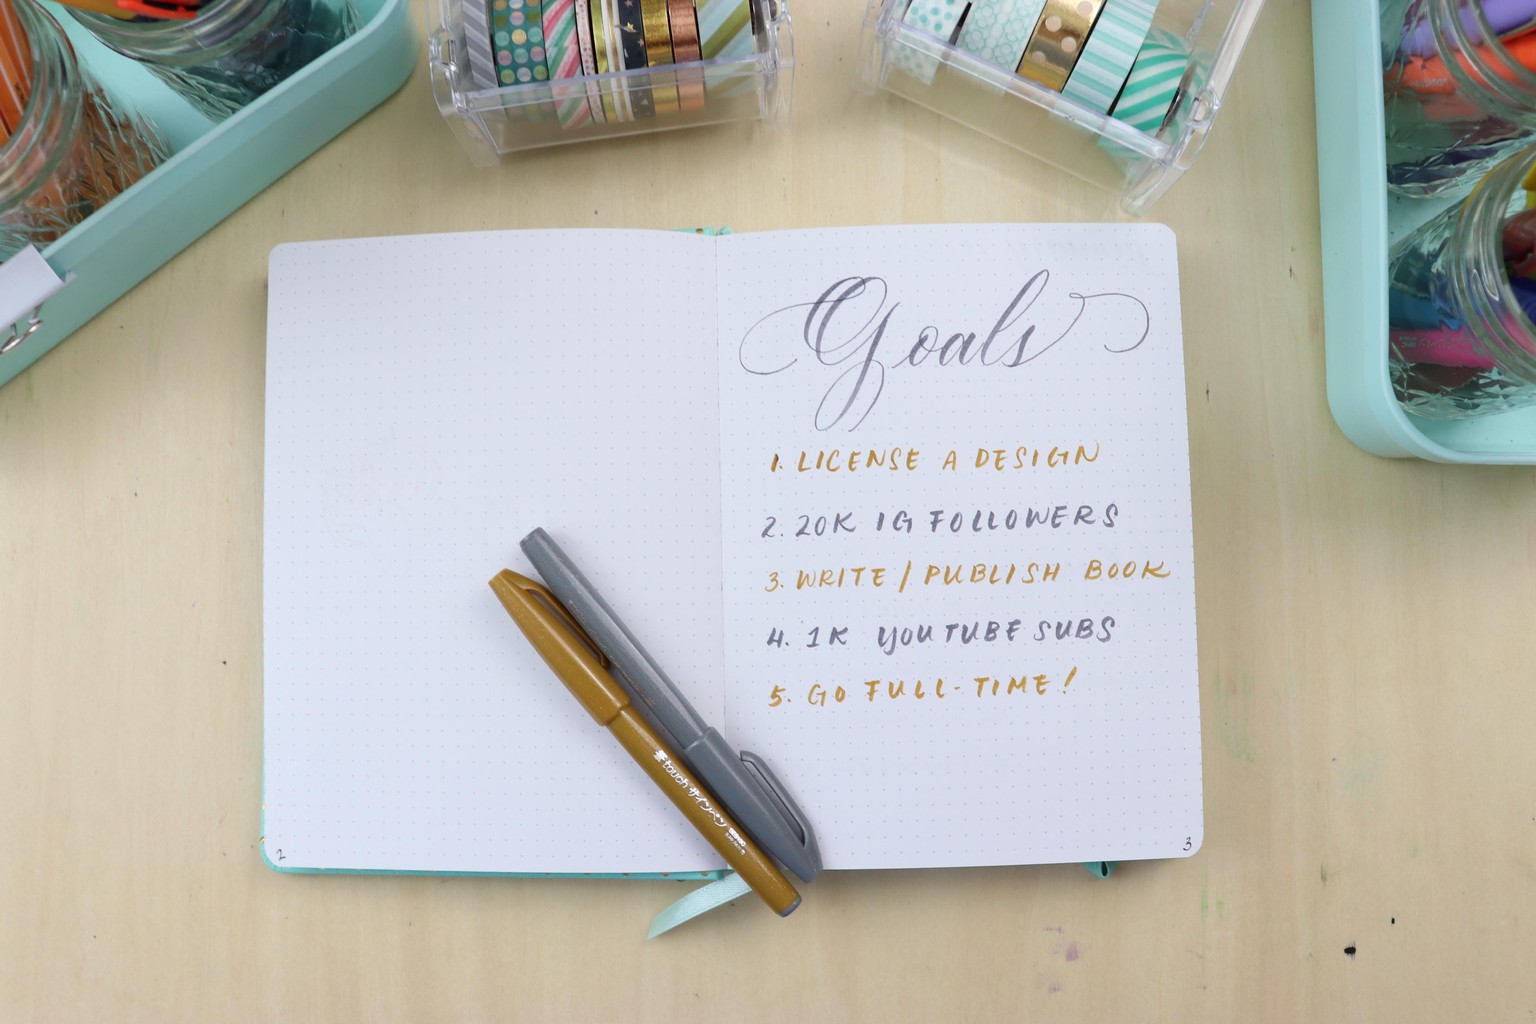 Goals
1. LICENSE A DESIGN
2. 20K IG FOLLOWERS
3. WRITE / PUBLISH BOOK
4. 1K YOUTUBE SUBS
5. GO FULL-TIME!
touch サインペン
2
3